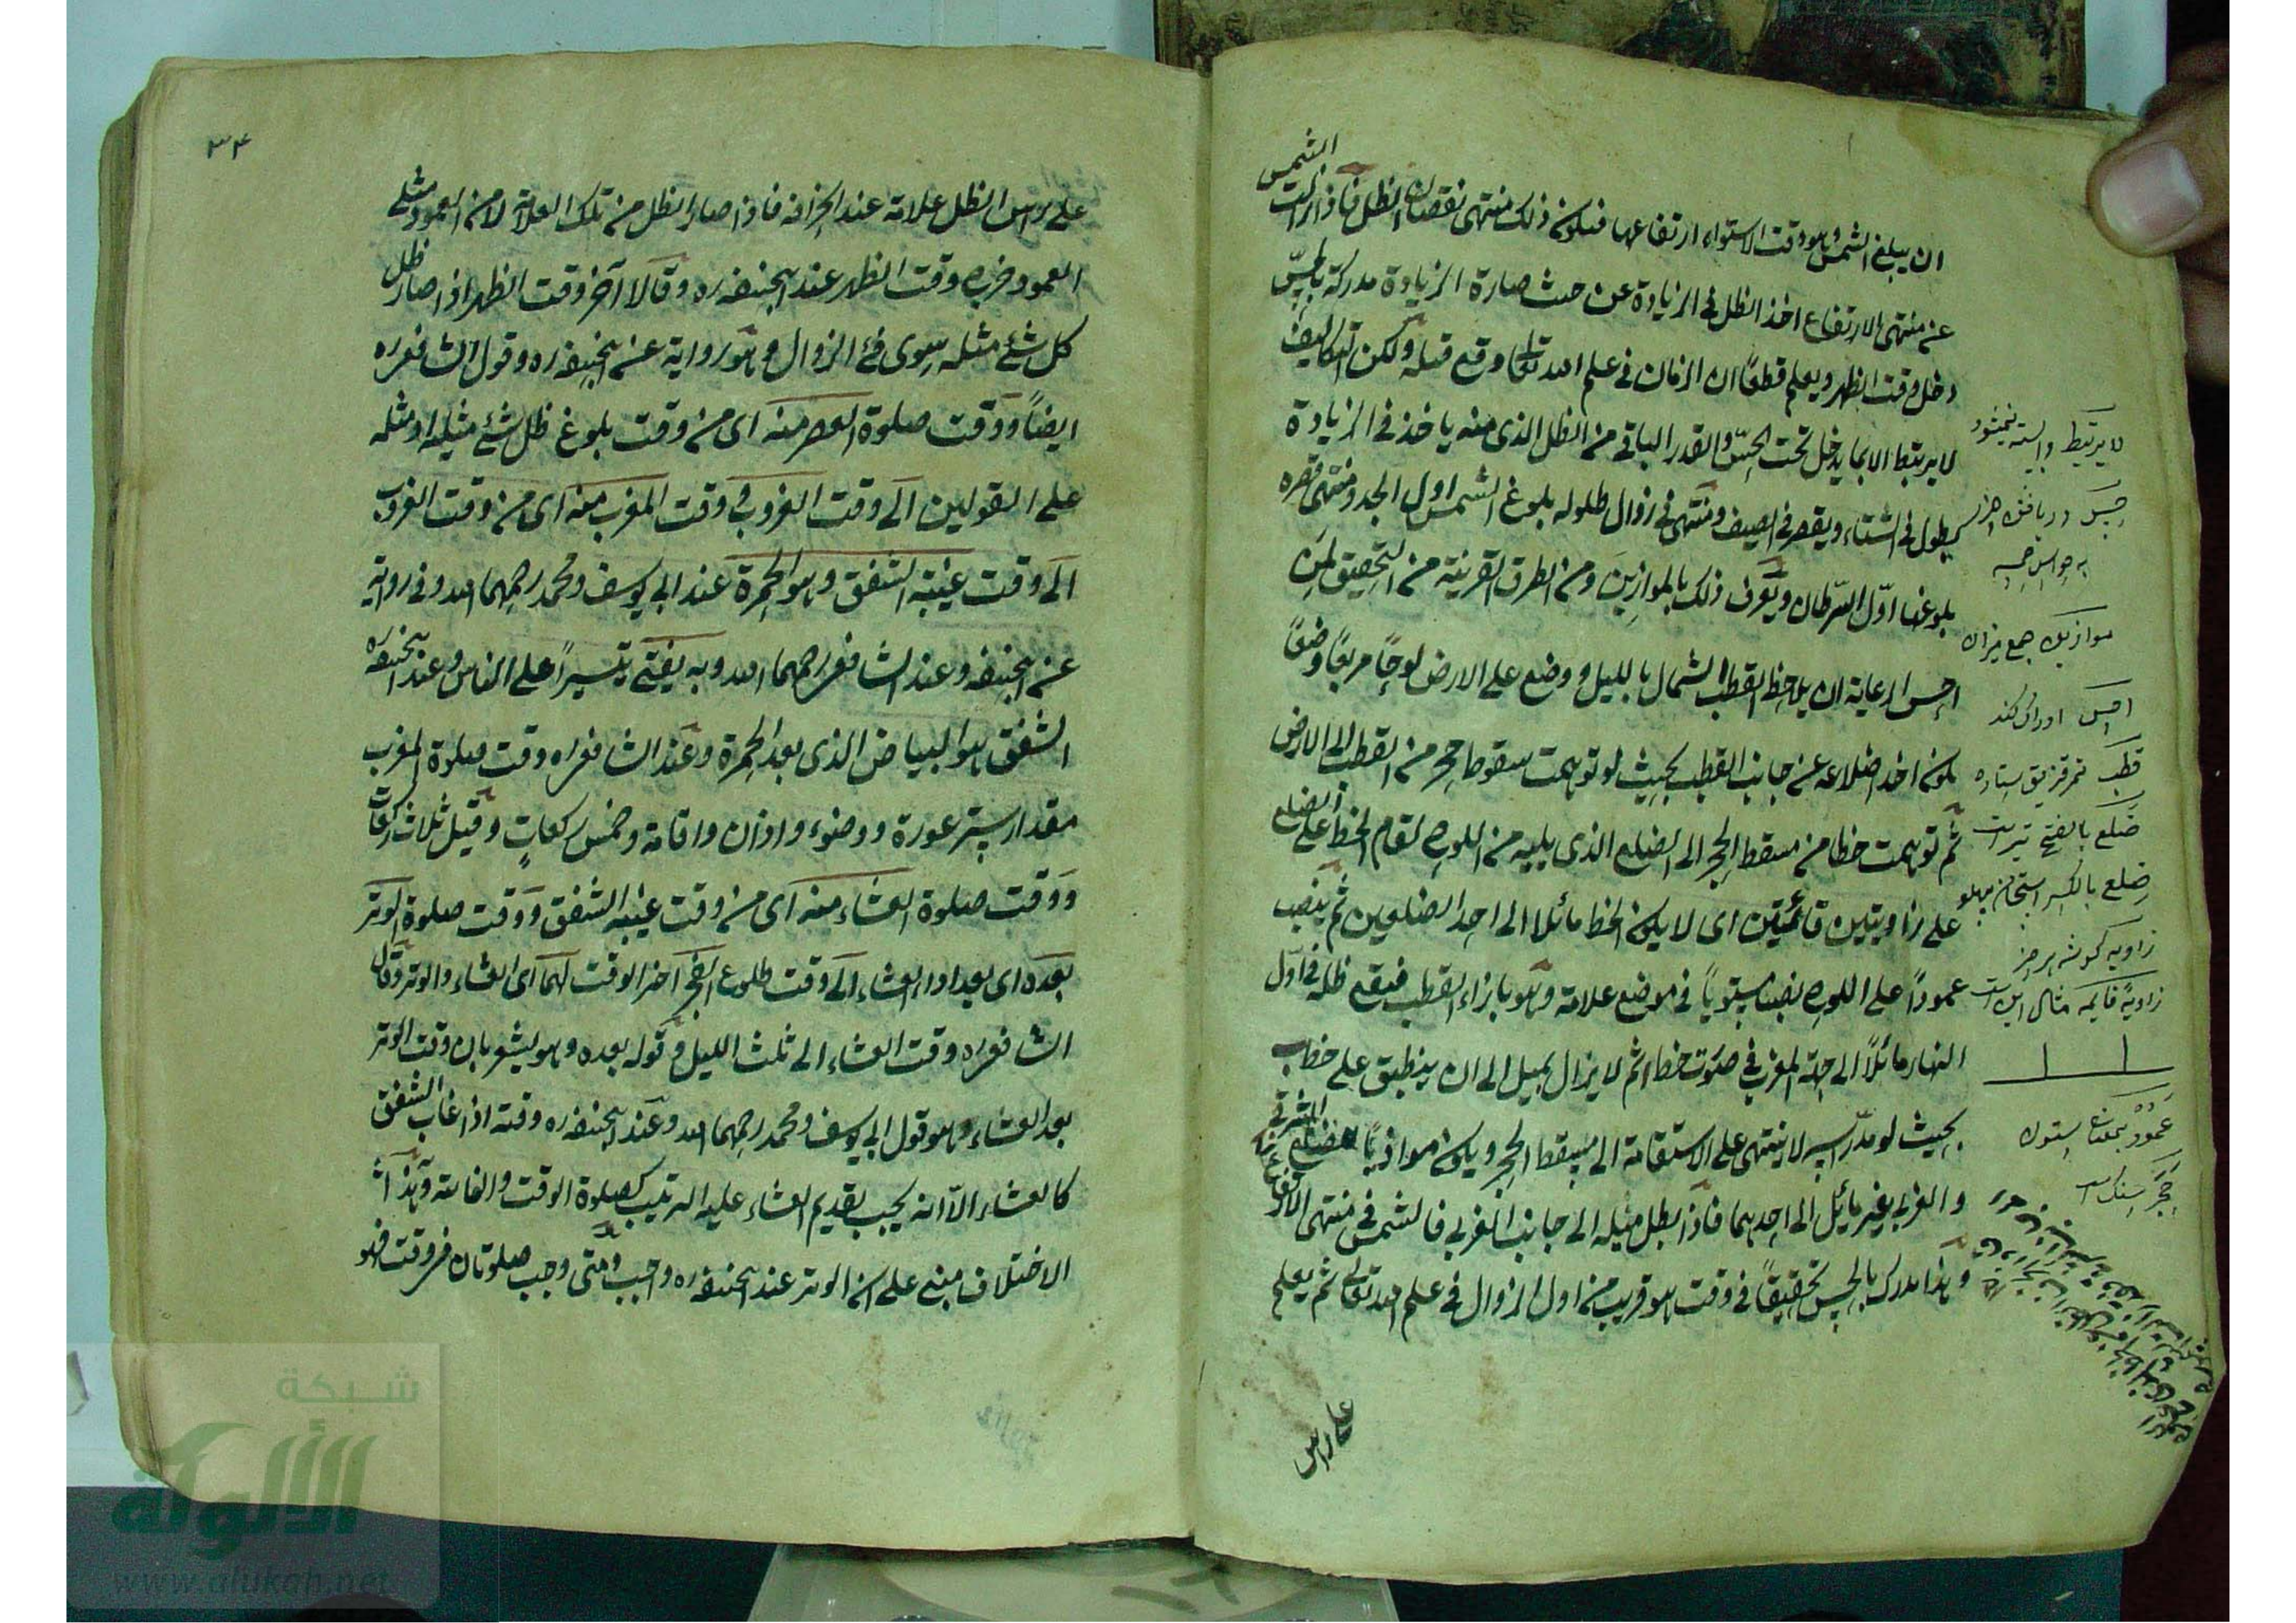 ان يبلغ الشمس وهو وقت الاستواء ارتفاعها فيكون ذلك منتهى نقصان الظل فاذا زالت الشمس
عن منتهى الارتفاع اخذ الظل في الزيادة عن حيث صارة الزيادة مدركة بالحسّ
دخل وقت الظهر ويعلم قطعًا ان الزمان في علم الله تعالى وقع قبله ولكن التكاليف
لا يرتبط الا بما يدخل تحت الحسّ والقدر الباقي من الظل الذي منه ياخذ في الزيادة
يطول في الشتاء ويقصر في الصيف ومنتهى في زوال طلوله بلوغ الشمس اول الجدي ومنتهى قصره
بلوغها اوّل السّرطان ويعرف ذلك بالموازين ومن الطرق القريبة من التحقيق لمن
احسن الرعاية ان يلاحظ القطب الشمال بالليل ووضع على الارض لوحًا مربعًا وضعًا
يكون احد اضلاعه عن جانب القطب بحيث لو توهمت سقوط حجر من القطب الى الارض
ثم توهمت خطا من مسقط الحجر الى الضلع الذي يليه من اللوح لقام الخط على الضلع
على زاويتين قائمتين اى لا يكون الخط مائلا الى احد الضلعين ثم ينصب
عمودًا على اللوح نصبا مستويًا في موضع علامة وهو بازاء القطب فيقع ظله في اول
النهار مائلًا الى جهة المغرب في صوب خط ا ثم لا يزال يميل الى ان ينطبق على خط ب
بحيث لو مدّ راسه لانتهى على الاستقامة الى مسقط الحجر ويكون موازيًا للضلع الشرقي
والغربي غير مائل الى احدهما فاذا بطل ميله الى جانب الغربي فالشمس في منتهى الارتفاع
وهذا يدرك بالحس تحقيقًا في وقت هو قريب من اول الزوال في علم الله تعالى ثم يعلم
على راس
لا يرتبط وابسته نميشود
حس دريافتن
به حواس خمسه
موازين جمع ميزان
قطب
ضلع بالفتح
ضلع بالكسر استخوان پهلو
زاويه گوشه هر چيز
زاويه قايمه مثال اين است
عمود بمعنى ستون
حجر سنك است
٣٤
على راس الظل علامة عند انحرافه فاذا صار الظل من تلك العلامة لا من العمود مثلى
العمود خرج وقت الظهر عند ابيحنيفه ره وقالا آخر وقت الظهر اذا صار ظل
كل شئ مثله سوى فئ الزوال وهو رواية عن ابيحنيفه ره وقول الشافعى ره
ايضًا ووقت صلوة العصر منه اى من وقت بلوغ ظل شئ مثليه او مثله
على القولين الى وقت الغروب و وقت المغرب منه اى من وقت الغروب
الى وقت غيبة الشفق وهو الحمرة عند ابى يوسف ومحمد رحمهما الله وفى رواية
عن ابيحنيفه وعند الشافعى رحمهما الله وبه يفتى تيسيرًا على الناس وعند ابيحنيفه ره
الشفق هو البياض الذى بعد الحمرة وعند الشافعى ره وقت صلوة المغرب
مقدار ستر عورة ووضوء واذان واقامة وخمس ركعات وقيل ثلاث ركعات
ووقت صلوة العشاء منه اى من وقت غيبة الشفق ووقت صلوة الوتر
بعده اى بعد اداء العشاء الى وقت طلوع الفجر آخر الوقت لهما اى العشاء والوتر وقال
الشافعى ره وقت العشاء الى ثلث الليل وقوله بعده وهو يشعر بان وقت الوتر
بعد العشاء وهو قول ابى يوسف ومحمد رحمهما الله وعند ابيحنيفه ره وقته اذا غاب الشفق
كالعشاء الّا انه يجب تقديم العشاء عليه للترتيب كصلوة الوقت والفائتة وهذا
الاختلاف مبنى على ان الوتر عند ابيحنيفه ره واجب ومتى وجب صلوتان فى وقت فهو
شبكة
الألوكة
www.alukah.net